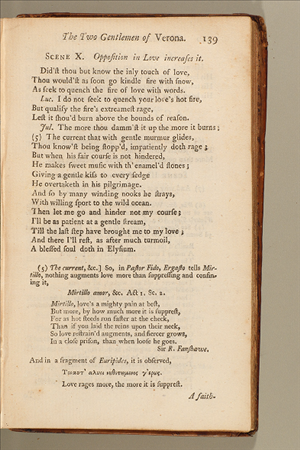 The Two Gentlemen of Verona. 139
SCENE X. Opposition in Love increases it.
Did'st thou but know the inly touch of love,
Thou would'st as soon go kindle fire with snow,
As seek to quench the fire of love with words.
Luc. I do not seek to quench your love's hot fire,
But qualify the fire's extreamest rage,
Lest it shou'd burn above the bounds of reason.
Jul. The more thou damm'st it up the more it burns;
(5) The current that with gentle murmur glides,
Thou know'st being stopp'd, impatiently doth rage;
But when his fair course is not hindered,
He makes sweet music with th' enamel'd stones;
Giving a gentle kiss to every sedge
He overtaketh in his pilgrimage.
And so by many winding nooks he strays,
With willing sport to the wild ocean.
Then let me go and hinder not my course;
I'll be as patient as a gentle stream,
Till the last step have brought me to my love;
And there I'll rest, as after much turmoil,
A blessed soul doth in Elysium.
(5) The current, &c.] So, in Pastor Fido, Ergasto tells Mir-
tillo, nothing augments love more than suppressing and confin-
ing it,
Mirtillo amor, &c. Act 1. Sc. 2.
Mirtillo, love's a mighty pain at best,
But more, by how much more it is supprest,
For as hot steeds run faster at the check,
Than if you laid the reins upon their neck,
So love restrain'd augments, and fiercer grows,
In a close prison, than when loose he goes.
Sir R. Fanshawe.
And in a fragment of Euripides, it is observed,
Love rages more, the more it is supprest.
A faith-